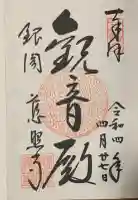 奉拝
令和四年
四月廿七日
観音殿
銀閣 慈照寺